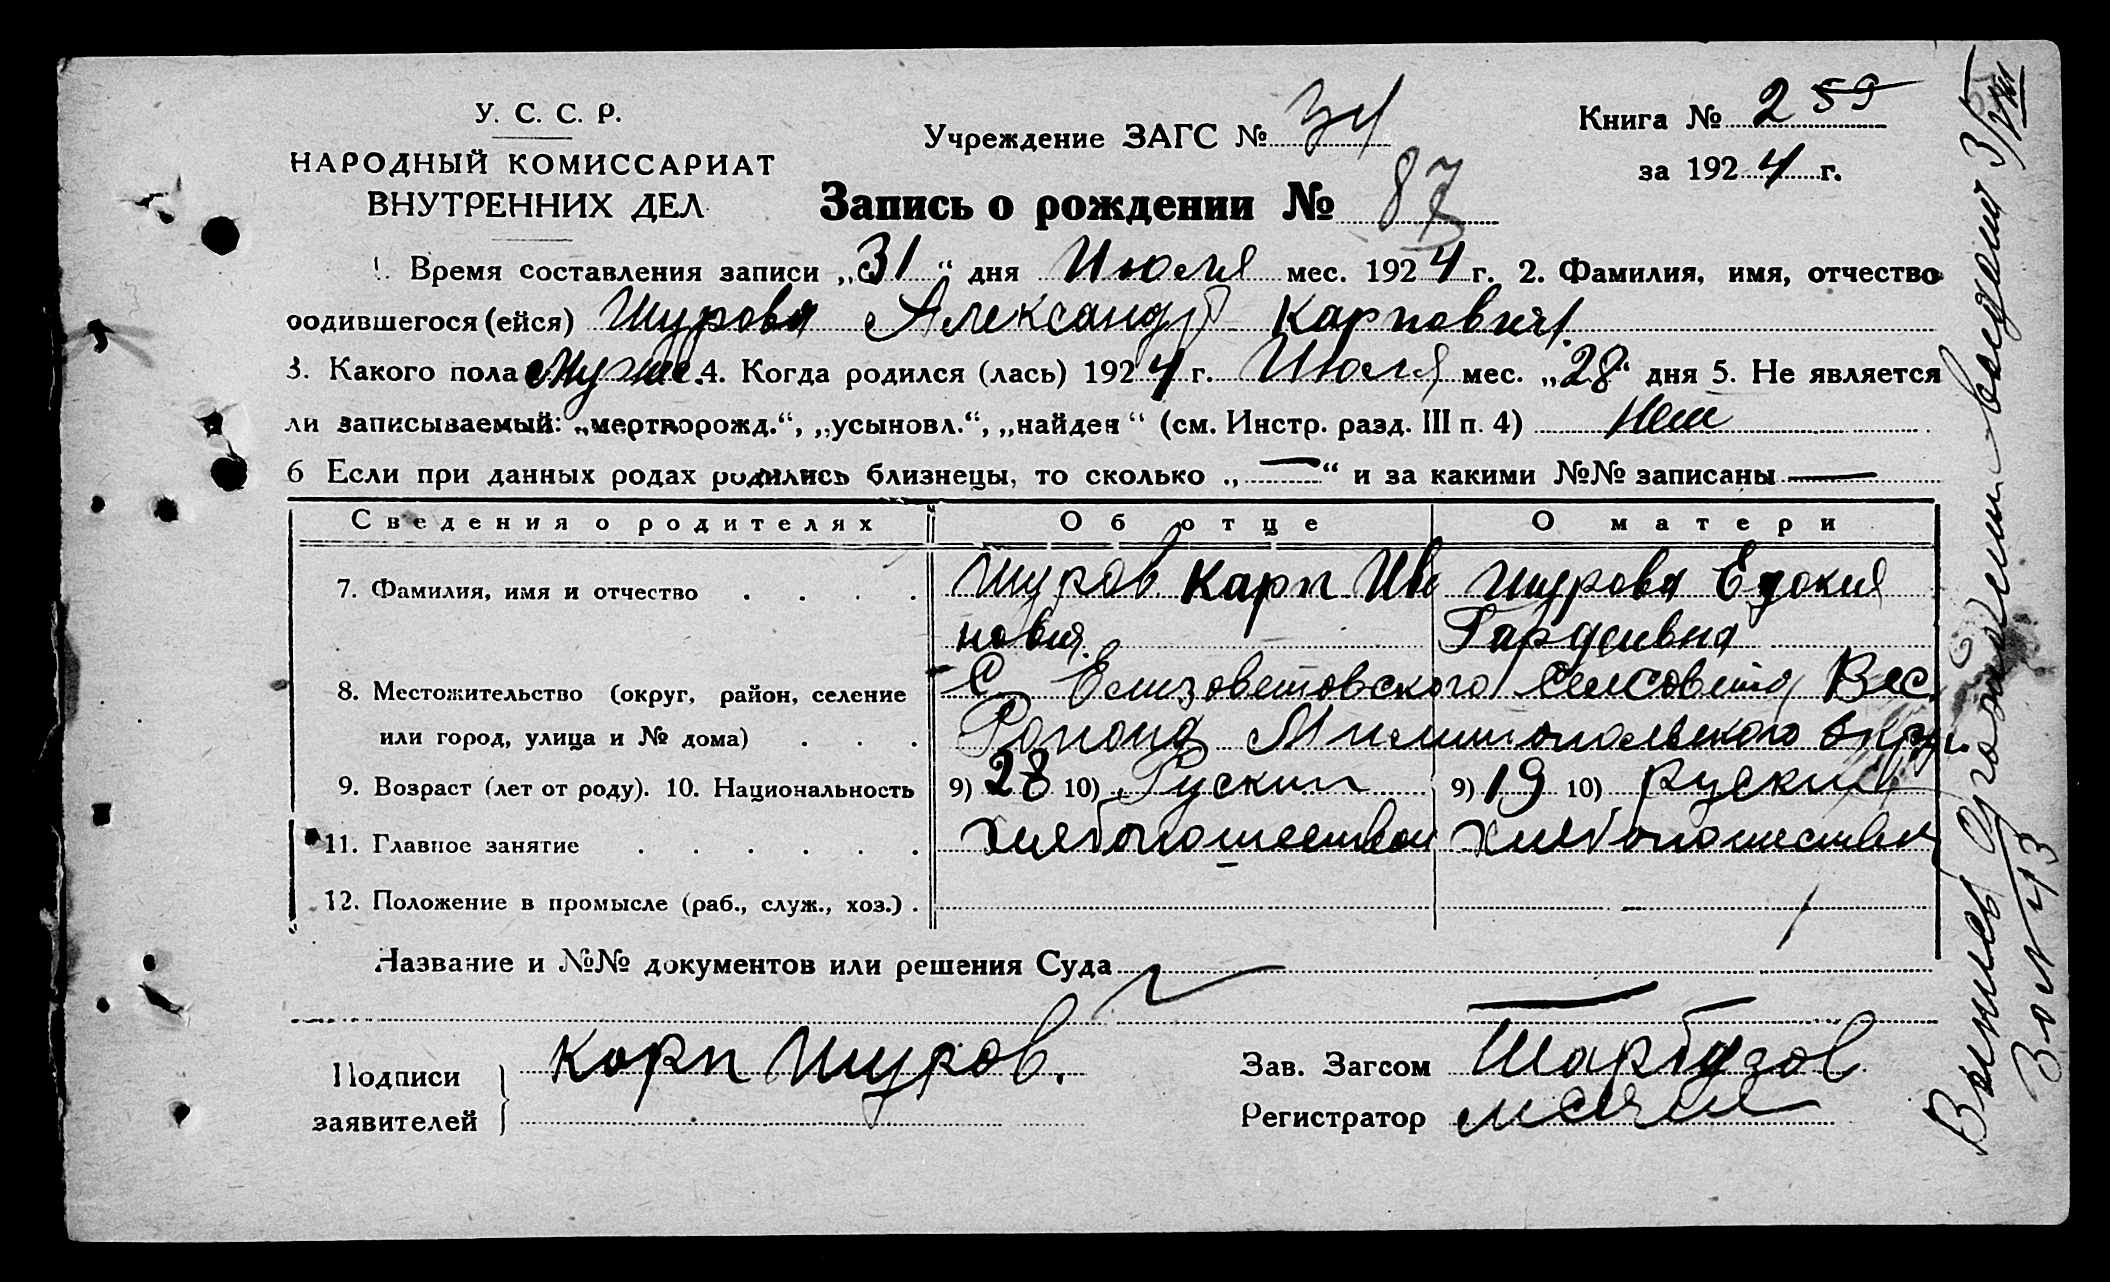 У. С. С. Р.
НАРОДНЫЙ КОМИССАРИАТ
ВНУТРЕННИХ ДЕЛ
Учреждение ЗАГС № 34
Книга № 2 59
за 1924 г.
Запись о рождении № 87
1. Время составления записи „31“ дня Июля мес. 1924 г. 2. Фамилия, имя, отчество
родившегося (ейся) Шурова Александр Карповия.
3. Какого пола муже. 4. Когда родился (лась) 1924 г. Июля мес. „28“ дня 5. Не является
ли записываемый: „мертворожд.“, „усыновл.“, „найден“ (см. Инстр. разд. III п. 4) Нет
6 Если при данных родах родились близнецы, то сколько „—“ и за какими №№ записаны —
Сведения о родителях Об отце О матери
7. Фамилия, имя и отчество . . . . Шуров Карп Ива Шурова Едокия
новия. Гардеивна
8. Местожительство (округ, район, селение С. Елизоветовского Селсовета Вес.
или город, улица и № дома) . . . Ропона Милитопольского окру
9. Возраст (лет от роду). 10. Национальность 9) 28 10) Руский 9) 19 10) руский
11. Главное занятие . . . . . . Хлебопошеством Хлебопошеством
12. Положение в промысле (раб., служ., хоз.) . —
Название и №№ документов или решения Суда
Подписи Корп Шуров. Зав. Загсом Тарбузов
заявителей Регистратор